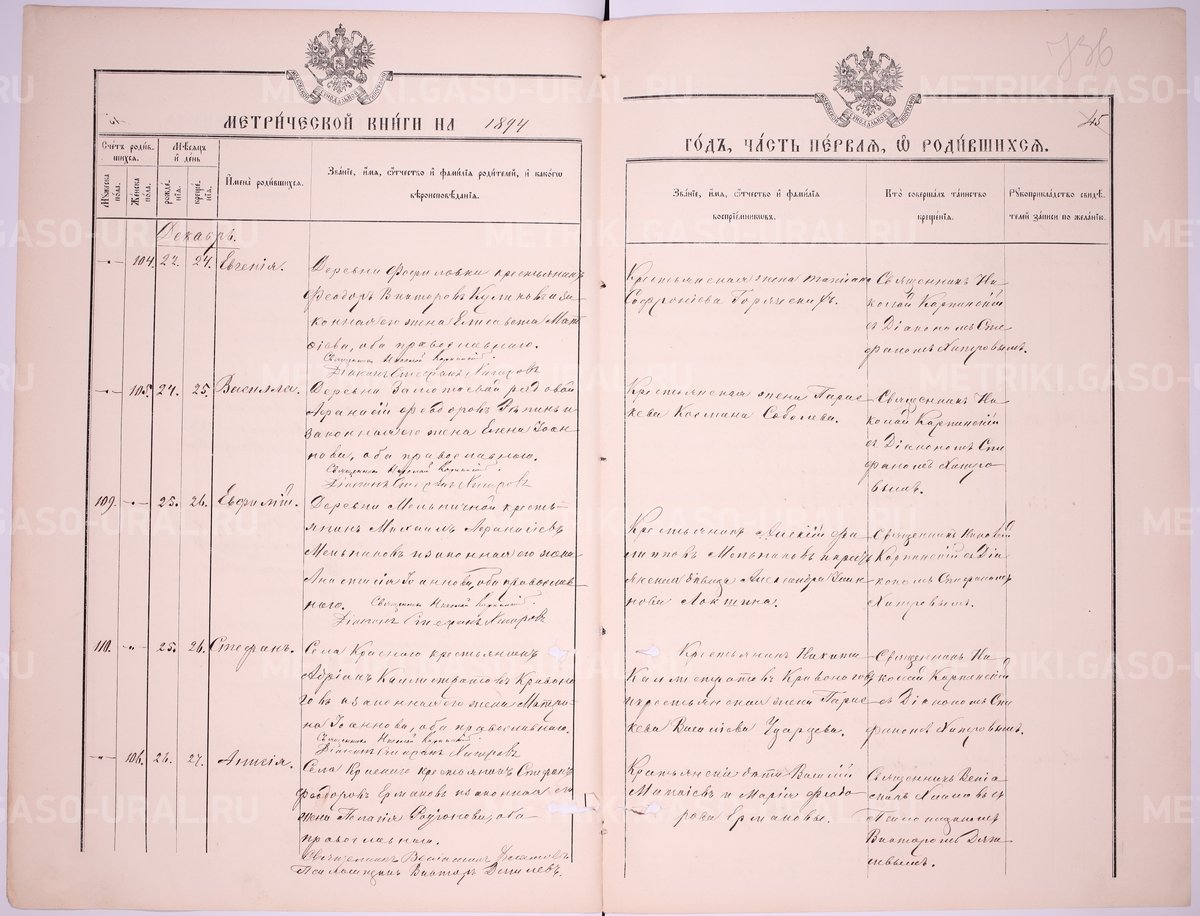 736
45
МЕТРИЧЕСКОЙ КНИГИ НА 1894
ГОДЪ, ЧАСТЬ ПЕРВАЯ, Ѿ РОДИВШИХСЯ.
Счетъ родив-
шихся.
Мѣсяцъ
и день
Мужеска пола.
Женска пола.
рожде-нія.
креще-нія.
Имена родившихся.
Званіе, имя, отчество и фамилія родителей, и какого
вѣроисповѣданія.
Званіе, имя, отчество и фамилія
воспріемниковъ.
Кто совершалъ таинство
крещенія.
Рукоприкладство свидѣ-
телей записи по желанію.
Декабрь.
104. 22. 24. Евгенія.
крестьянинъ
Феодоръ Викторовъ Куликовъ и за-
конная его жена Елисавета Мат-
ѳіева, оба православнаго.
Священникъ Николай Карпинскій
Діаконъ Стефанъ Хитровъ
Крестьянская жена Татіана
Софроніева
Священникъ Ни-
колай Карпинскій
съ Діакономъ Сте-
фаномъ Хитровымъ.
105. 24. 25. Васисса.
Деревни рядовой
Аѳанасій Ѳеодоровъ Рѣпинъ и
законная его жена Елена Іоан-
нова, оба православнаго.
Священникъ Николай Карпинскій
Діаконъ Стефанъ Хитровъ
Крестьянская жена Парас-
кева Космина Соболева.
Священникъ Ни-
колай Карпинскій
съ Діакономъ Сте-
фаномъ Хитро-
вымъ.
109. 25. 26. Евфимій.
Деревни Мельничной кресть-
янинъ Михаилъ Аѳанасіевъ
Мельпановъ и законная его жена
Анастасія Іоаннова, оба православ-
наго. Священникъ Николай Карпинскій
Діаконъ Стефанъ Хитровъ
Крестьянинъ Алексій Фи-
липповъ Мельпановъ и кресть-
янская дѣвица Александра Іоан-
нова Локтина.
Священникъ Николай
Карпинскій съ Діа-
кономъ Стефаномъ
Хитровымъ.
110. 25. 26. Стефанъ.
Села Краснаго крестьянинъ
Адріанъ Каллистратовъ Кривоно-
говъ и законная его жена Матро-
на Іоаннова, оба православнаго.
Священникъ Николай Карпинскій
Діаконъ Стефанъ Хитровъ
Крестьянинъ Никита
Каллистратовъ Кривоноговъ
и крестьянская жена Парас-
кева Василіева Ударцева.
Священникъ Ни-
колай Карпинскій
съ Діакономъ Сте-
фаномъ Хитровымъ.
106. 26. 27. Анисія.
Села Краснаго крестьянинъ Стефанъ
Ѳеодоровъ Ермаковъ и законная его
жена Пелагія оба
православнаго.
Священникъ Веніаминъ
Псаломщикъ Викторъ
Крестьянскія дѣти Василій
Матѳіевъ и Марія Ѳеодо-
рова Ермаковы.
Священникъ Веніа-
минъ съ
Псаломщикомъ
Викторомъ
METRIKI.GASO-URAL.RU